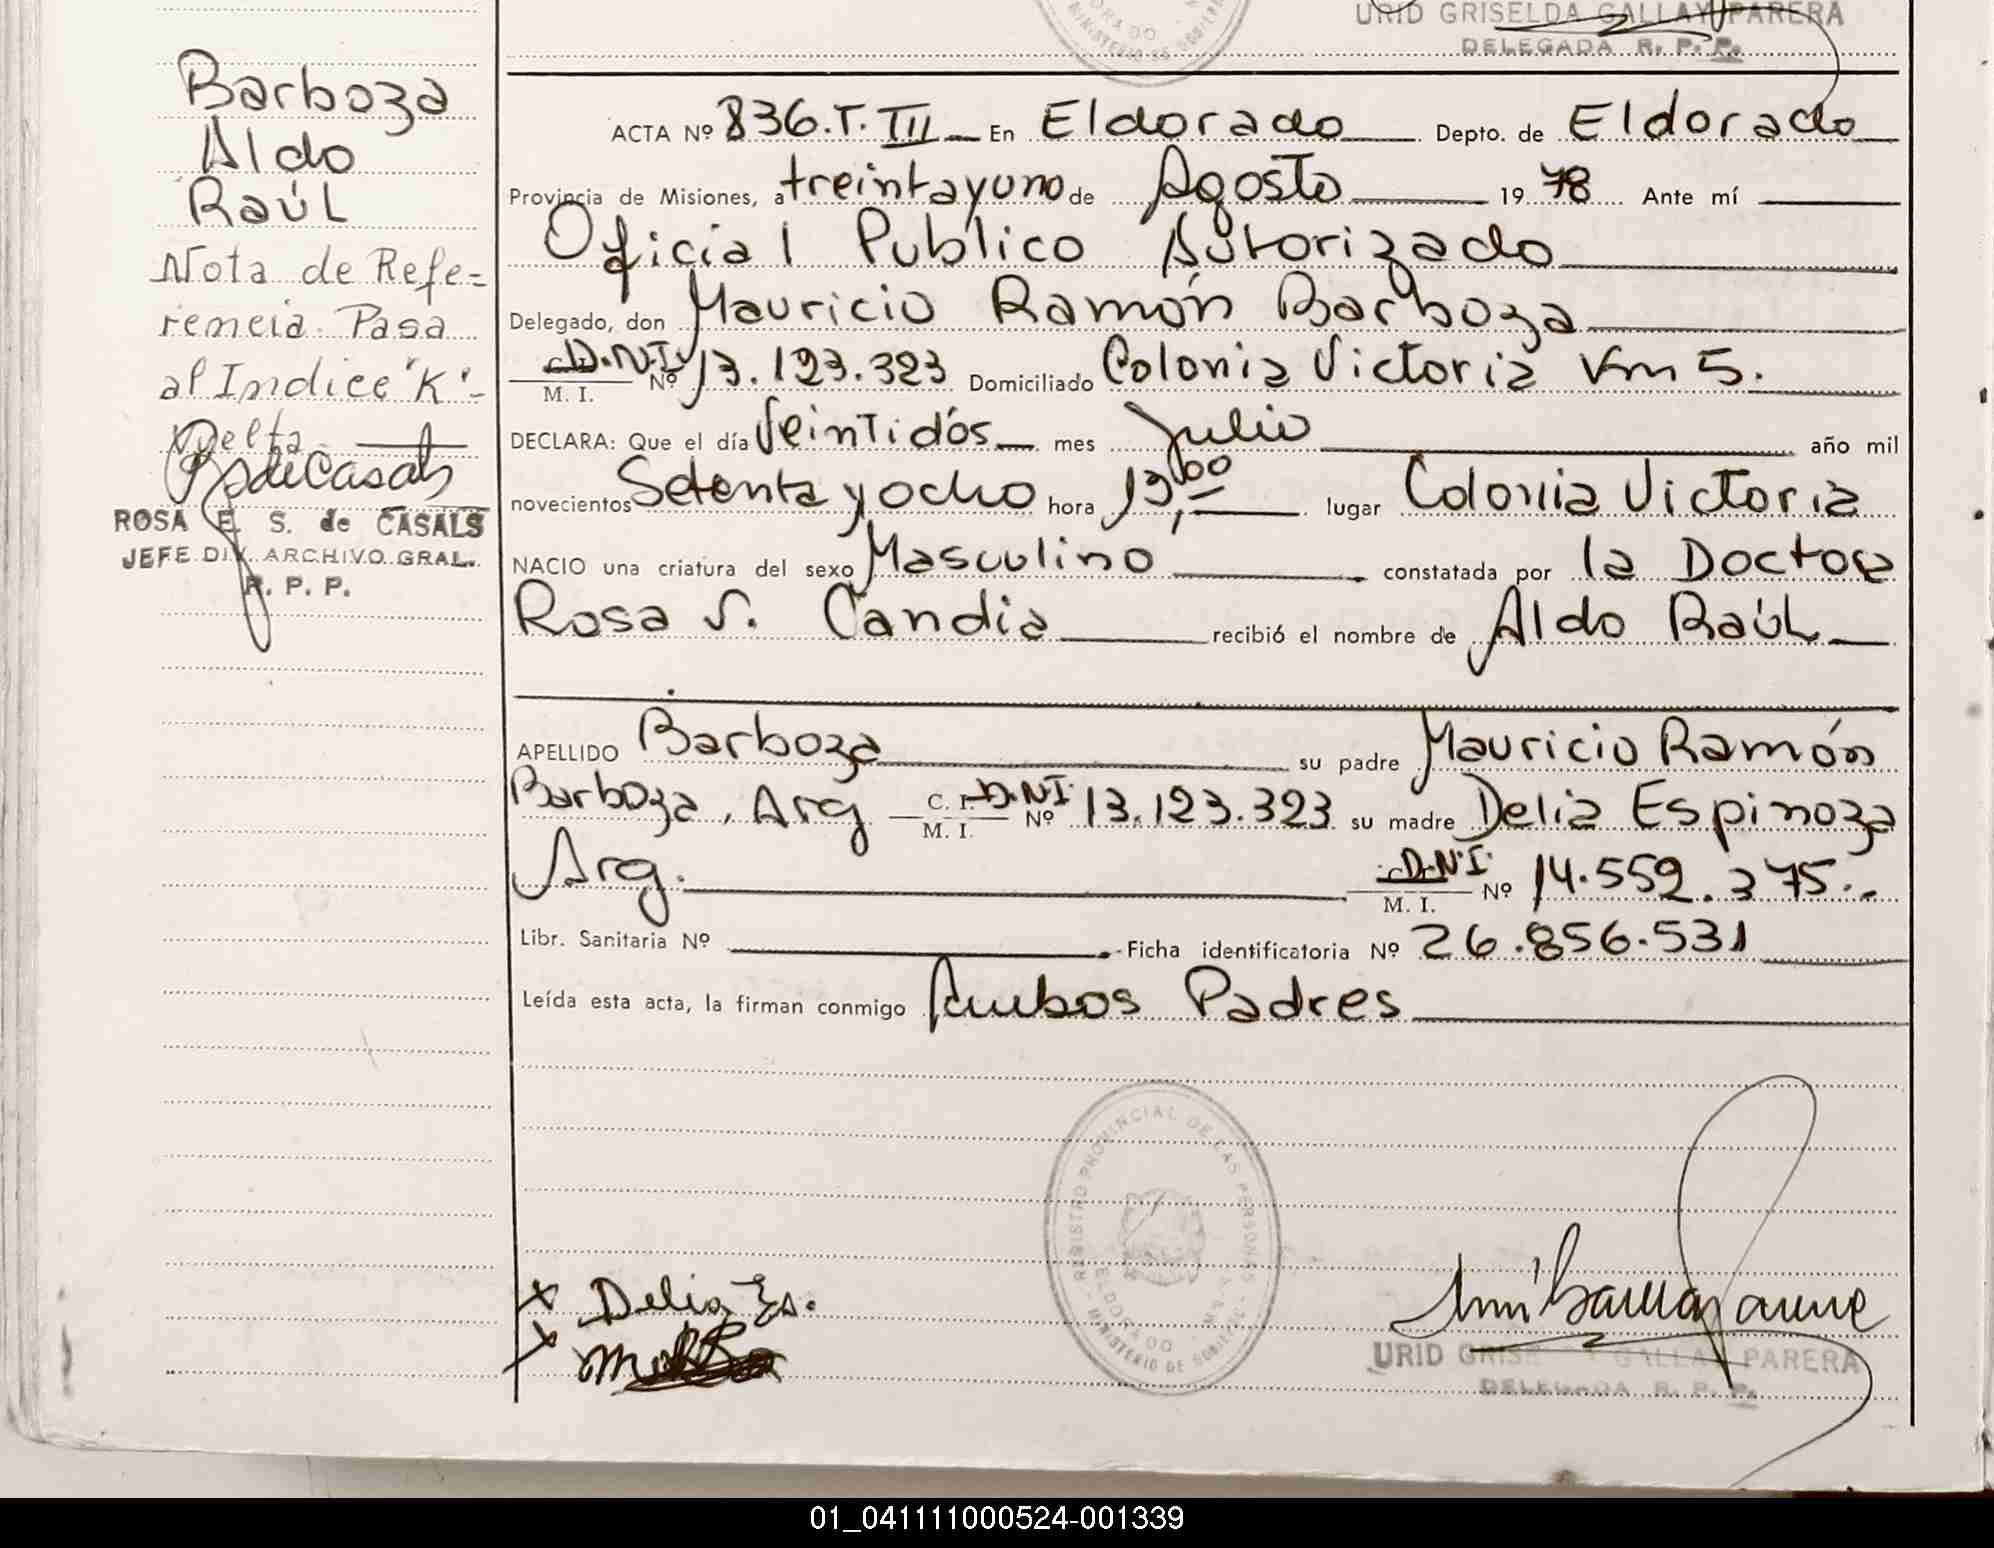 URID GRISELDA GALLAY PARERA
DELEGADA R. P. P.
Barboza
Aldo
Raúl
Nota de Refe-
rencia. Pasa
al Indice "K"-
Vuelta
ROSA E. S. de CASALS
JEFE DIV. ARCHIVO GRAL.
R. P. P.
ACTA Nº 836.T.III En Eldorado Depto. de Eldorado
Provincia de Misiones, a treintayuno de Agosto 19 78 Ante mí
Oficial Publico Autorizado
Delegado, don Mauricio Ramón Barboza
D.N.I. M. I. Nº 13.123.323 Domiciliado Colonia Victoria Km 5.
DECLARA: Que el día Veintidós mes Julio año mil
novecientos Setenta y ocho hora 13,00 lugar Colonia Victoria
NACIO una criatura del sexo Masculino constatada por la Doctora
Rosa V. Candia recibió el nombre de Aldo Raúl
APELLIDO Barboza su padre Mauricio Ramón
Barboza, Arg C. I. D.N.I M. I. Nº 13.123.323 su madre Delia Espinoza
Arg. D.N.I. M. I. Nº 14.552.375..
Libr. Sanitaria Nº Ficha identificatoria Nº 26.856.531
Leída esta acta, la firman conmigo Ambos Padres
REGISTRO PROVINCIAL DE LAS PERSONAS
ELDORADO
MINISTERIO DE GOBIERNO
x Delia Es.
x
URID GRISELDA GALLAY PARERA
DELEGADA R. P. P.
01_041111000524-001339